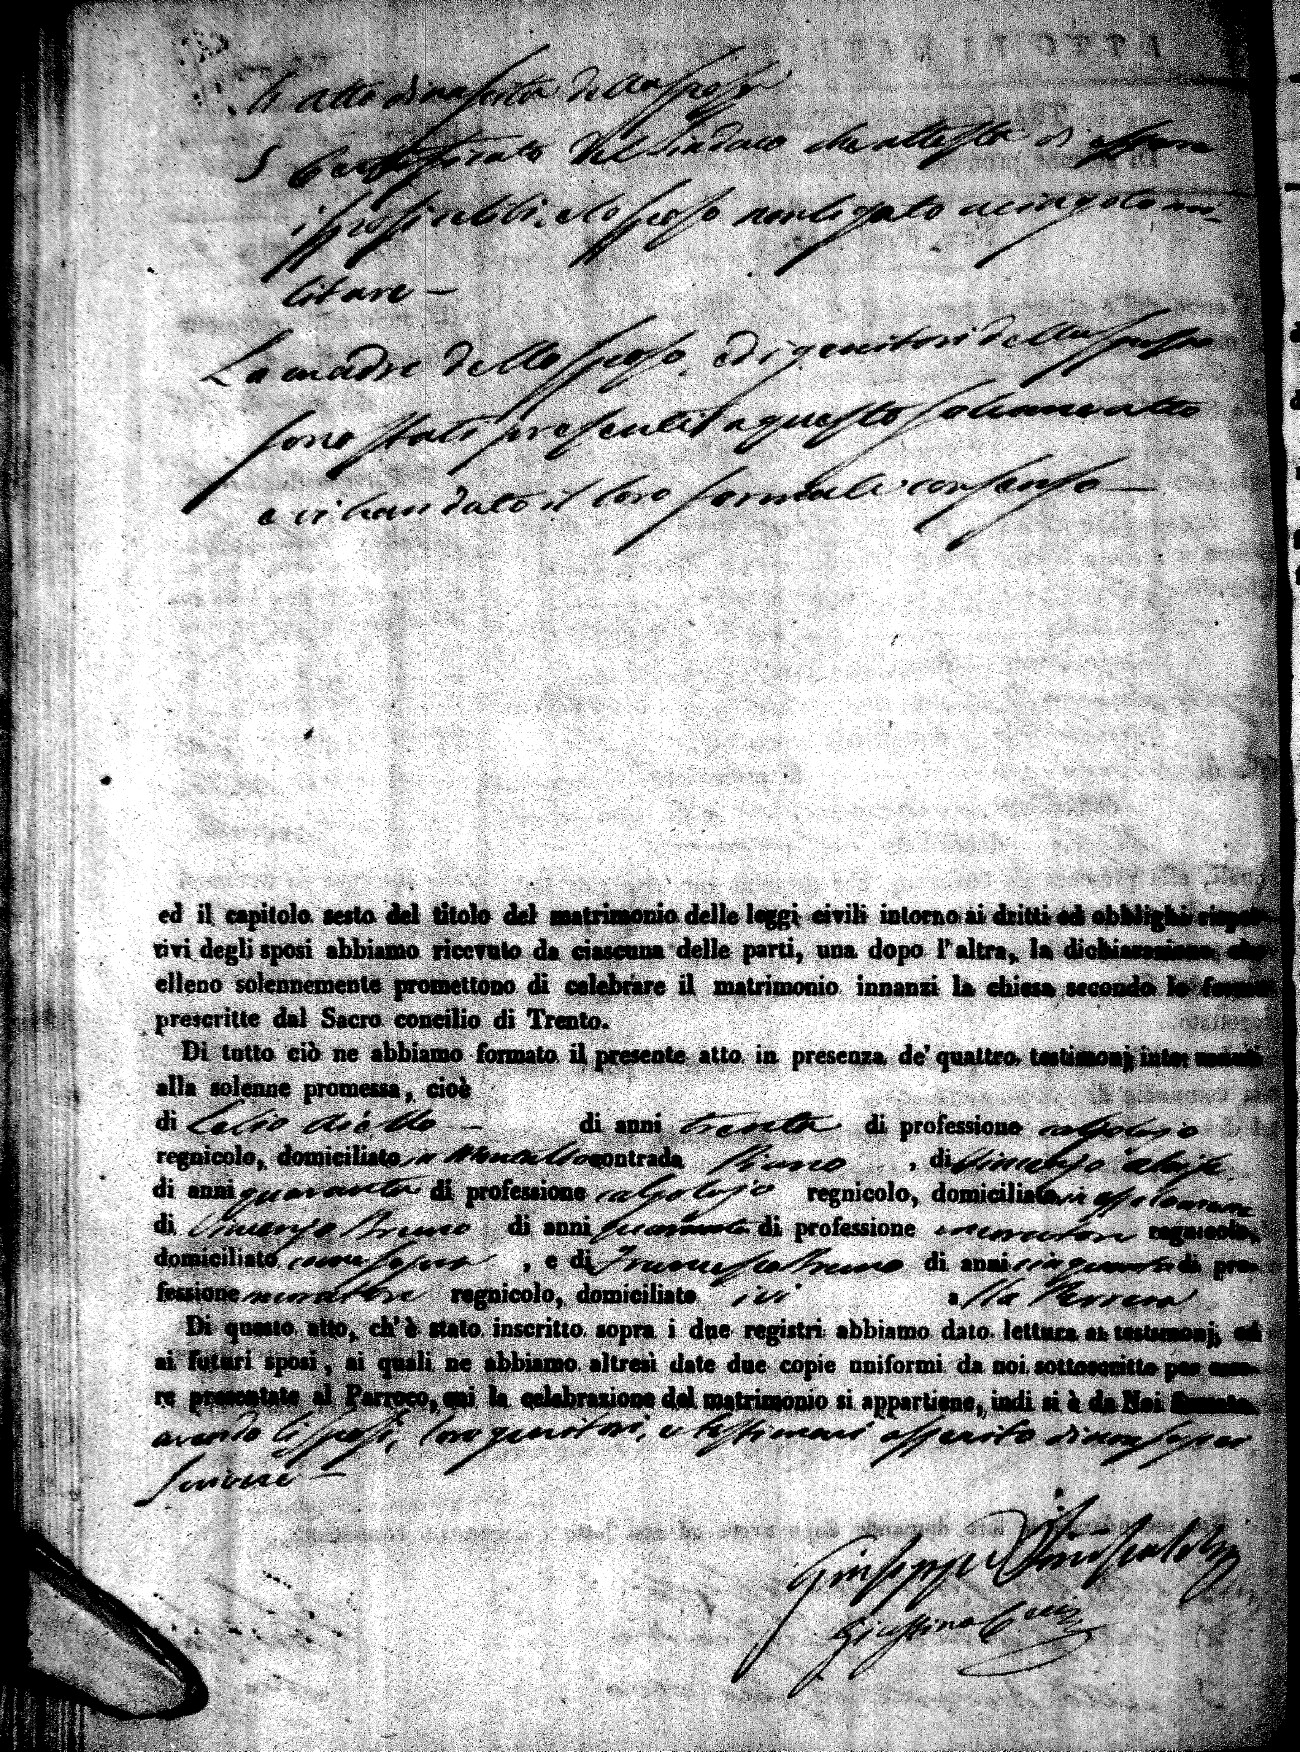 4 atto di nascita della sposa
5 Certificato del Sindaco che attesta di essere
impossidibili, e lo sposo non ligato a cingolo mi-
litare –
La madre dello sposo, ed i genitori della sposa
sono stati presenti a questo solenne atto
e vi han dato il loro formale consenso –
ed il capitolo sesto del titolo del matrimonio delle leggi civili intorno ai dritti ed obblighi rispet-
tivi degli sposi abbiamo ricevuto da ciascuna delle parti, una dopo l'altra, la dichiarazione, che
elleno solennemente promettono di celebrare il matrimonio innanzi la chiesa secondo le forme
prescritte dal Sacro concilio di Trento.
Di tutto ciò ne abbiamo formato il presente atto in presenza de' quattro testimonj intervenuti
alla solenne promessa, cioè
di Lelio Aiello – di anni trenta di professione calzolajo
regnicolo, domiciliato contrada Piano , di Vincenzo
di anni quaranta di professione calzolajo regnicolo, domiciliato
di Vincenzo Bruno di anni quaranta di professione muratore regnicolo,
domiciliato come sopra , e di Francesco Bruno di anni cinquanta di pro-
fessione muratore regnicolo, domiciliato ivi alla
Di questo atto, ch'è stato inscritto sopra i due registri abbiamo dato lettura ai testimonj, ed
ai futuri sposi, ai quali ne abbiamo altresì date due copie uniformi da noi sottoscritte per esse-
re presentate al Parroco, cui la celebrazione del matrimonio si appartiene, indi si è da Noi firmato,
avendo li sposi, loro genitori, e testimoni asserito di non saper
scrivere –
Giuseppe
Giustino